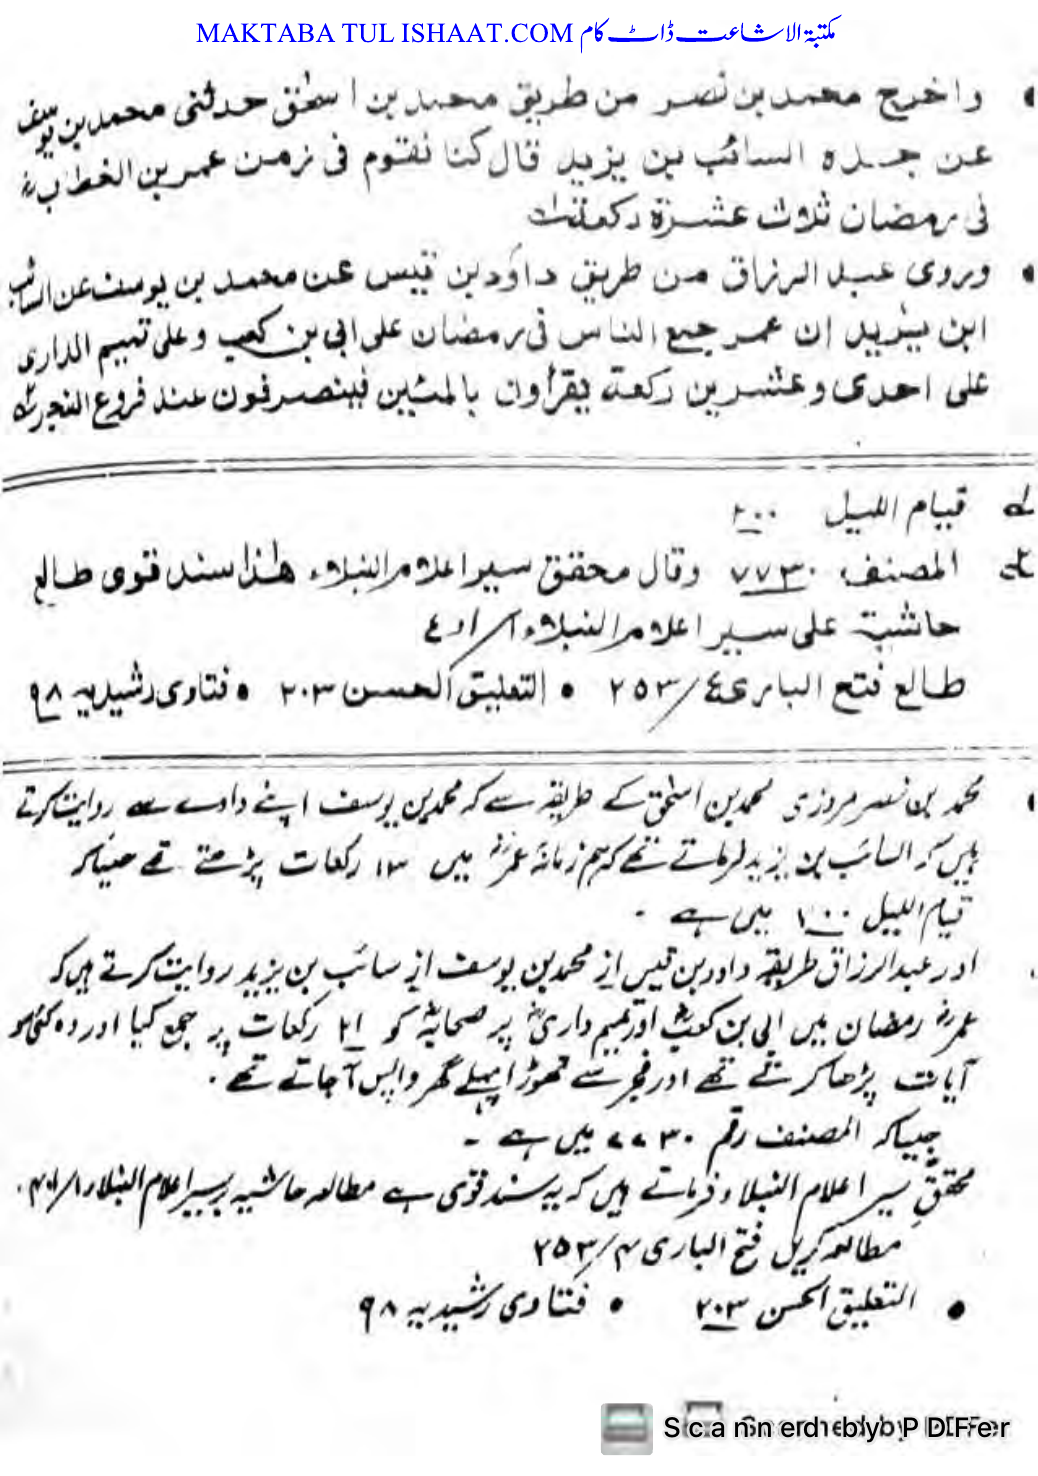 MAKTABA TUL ISHAAT.COM مکتبۃ الاشاعت ڈاٹ کام
واخرج محمد بن نصر من طريق محمد بن اسحٰق حدثنى محمد بن يوسف
عن جده السائب بن يزيد قال كنا نقوم فى زمن عمر بن الخطاب
فى رمضان ثلاث عشرة ركعة
وروى عبد الرزاق من طريق داؤد بن قيس عن محمد بن يوسف عن السائب
ابن يزيد ان عمر جمع الناس فى رمضان على ابى بن كعب وعلى تميم الدارى
على احدى وعشرين ركعة يقرأون بالمئين فينصرفون عند فروع الفجر
لہ قيام الليل ٢٠٠
لہ المصنف ٧٧٣٠ وقال محقق سير اعلام النبلاء هٰذا سند قوى طالع
حاشية على سير اعلام النبلاء
طالع فتح البارى ٤/٢٥٣ • التعليق الحسن ٢٠٣ • فتاوى رشيديه ٩٨
محمد بن نصر مروزی محمد بن اسحٰق کے طریقہ سے کہ محمد بن یوسف اپنے دادے سے روایت کرتے
ہیں کہ السائب بن یزید فرماتے تھے کہ ہم زمانہ عمرؓ میں ١٣ رکعات پڑھتے تھے جیساکہ
قیام اللیل ٢٠٠ میں ہے ۔
اور عبدالرزاق طریقہ داود بن قیس از محمد بن یوسف از سائب بن یزید روایت کرتے ہیں کہ
عمرؓ رمضان میں ابی بن کعبؓ اور تمیم داریؓ پر صحابہؓ کو ٢١ رکعات پر جمع کیا اور وہ کئی سو
آیات پڑھا کرتے تھے اور فجر سے تھوڑا پہلے گھر واپس آجاتے تھے ۔
جیساکہ المصنف رقم ٧٧٣٠ میں ہے ۔
محققِ سیر اعلام النبلاء فرماتے ہیں کہ یہ سند قوی ہے مطالعہ حاشیہ بر سیر اعلام النبلاء
مطالعہ کریں فتح الباری ٤/٢٥٣
• التعلیق الحسن ٢٠٣ • فتاوی رشیدیہ ٩٨
Scanned by PDFer